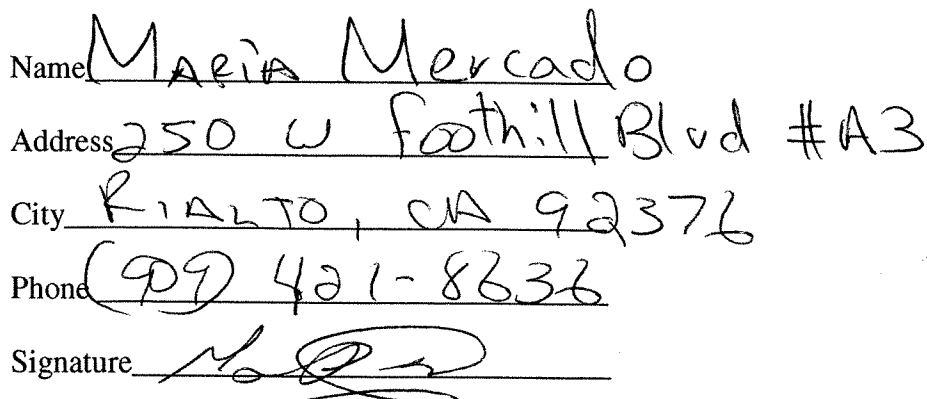 Name Maria Mercado
Address 250 W Foothill Blvd #A3
City RIALTO, CA 92376
Phone (909) 421-8636
Signature